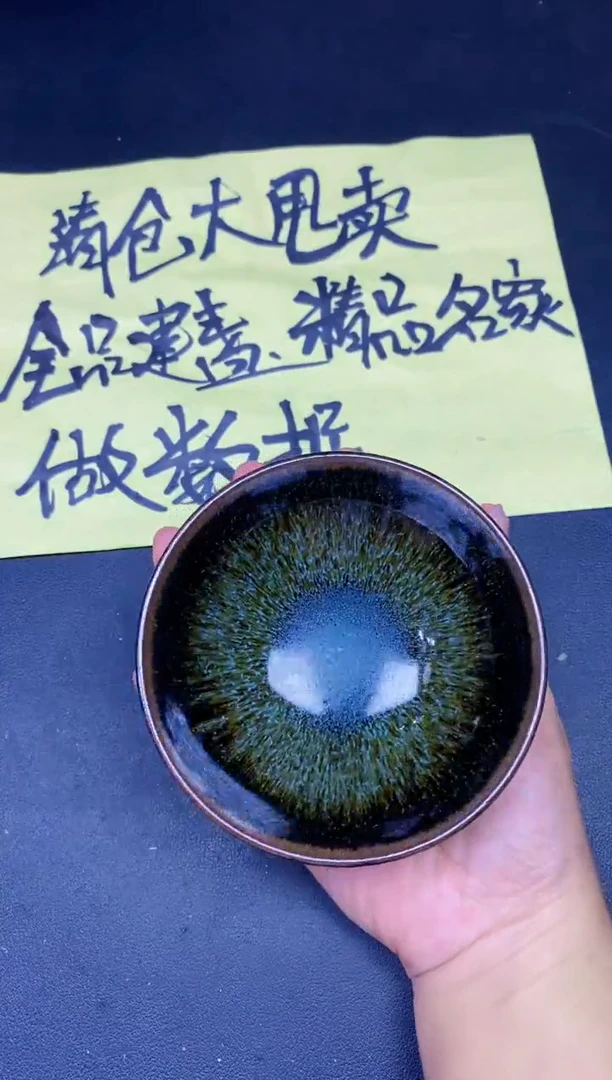 清仓大甩卖
全品建盏、精品名家
做数折